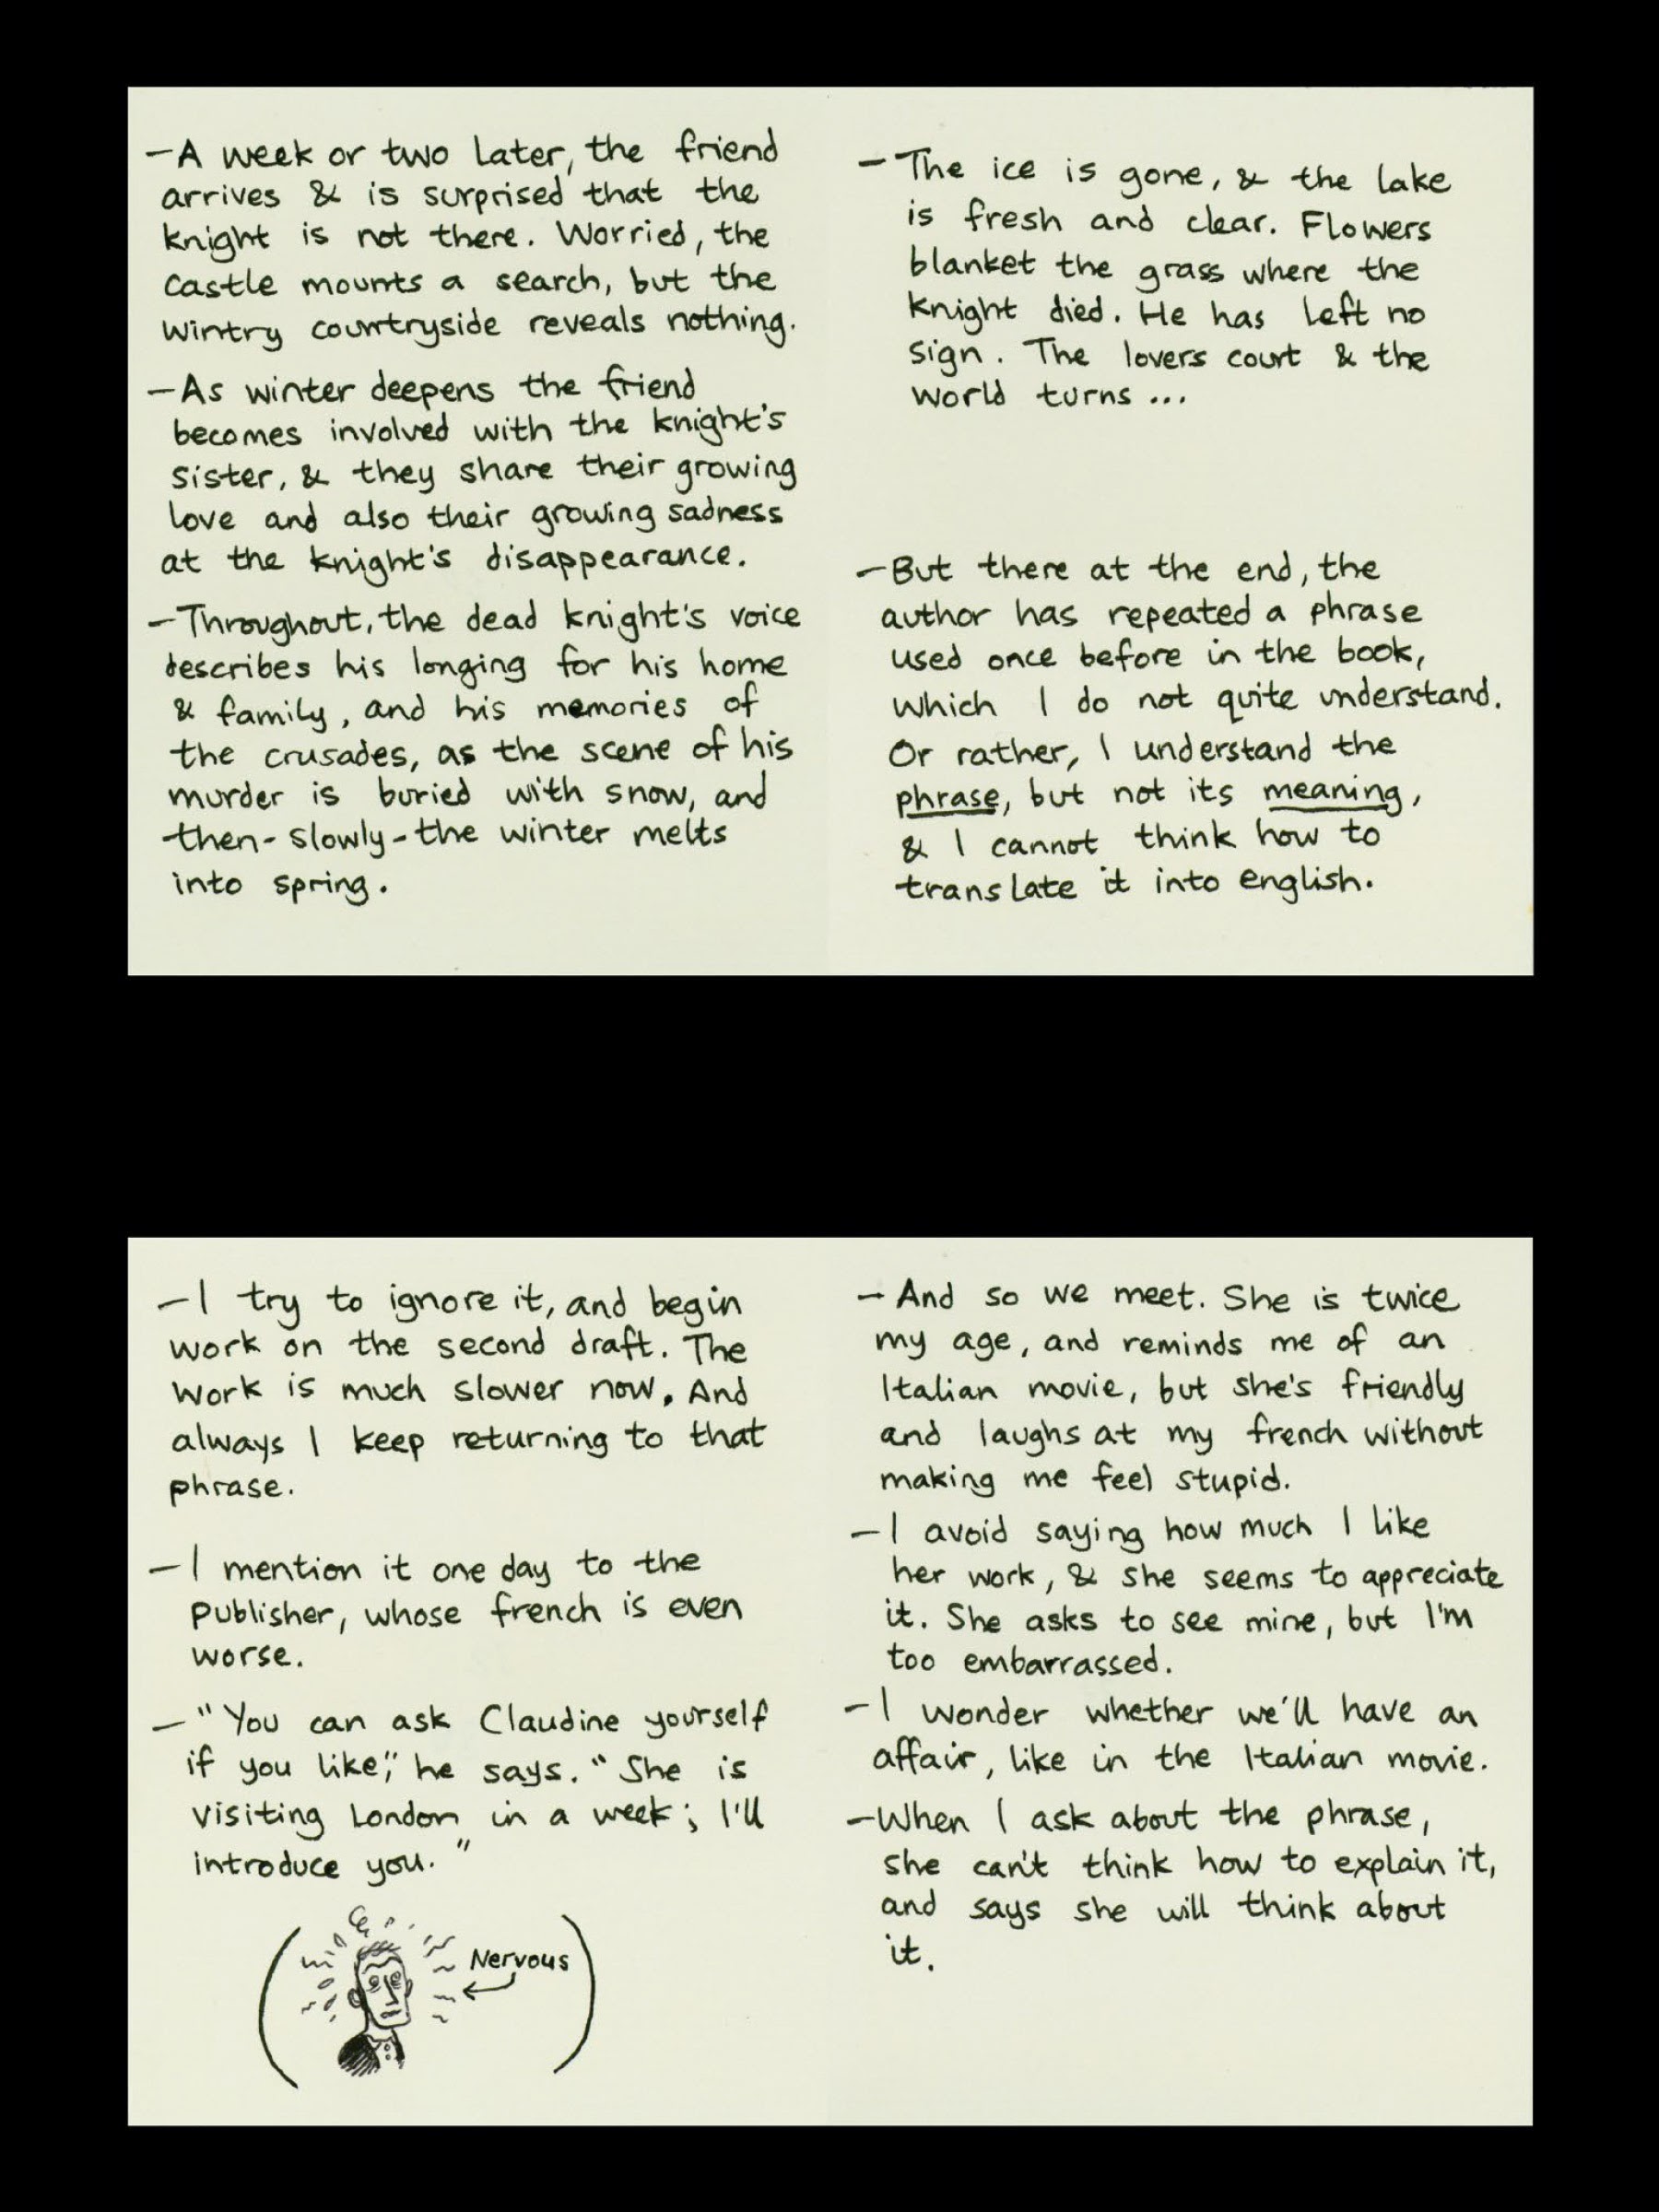 —A week or two later, the friend
arrives & is surprised that the
knight is not there. Worried, the
castle mounts a search, but the
wintry countryside reveals nothing.
—As winter deepens the friend
becomes involved with the knight's
sister, & they share their growing
love and also their growing sadness
at the knight's disappearance.
—Throughout, the dead knight's voice
describes his longing for his home
& family, and his memories of
the crusades, as the scene of his
murder is buried with snow, and
then-slowly-the winter melts
into spring.
—The ice is gone, & the lake
is fresh and clear. Flowers
blanket the grass where the
knight died. He has left no
sign. The lovers court & the
world turns...
—But there at the end, the
author has repeated a phrase
used once before in the book,
which I do not quite understand.
Or rather, I understand the
phrase, but not its meaning,
& I cannot think how to
translate it into english.
—I try to ignore it, and begin
work on the second draft. The
work is much slower now. And
always I keep returning to that
phrase.
—I mention it one day to the
publisher, whose french is even
worse.
—"You can ask Claudine yourself
if you like," he says. "She is
visiting London in a week; I'll
introduce you."
Nervous
—And so we meet. She is twice
my age, and reminds me of an
Italian movie, but she's friendly
and laughs at my french without
making me feel stupid.
—I avoid saying how much I like
her work, & she seems to appreciate
it. She asks to see mine, but I'm
too embarrassed.
—I wonder whether we'll have an
affair, like in the Italian movie.
—When I ask about the phrase,
she can't think how to explain it,
and says she will think about
it.